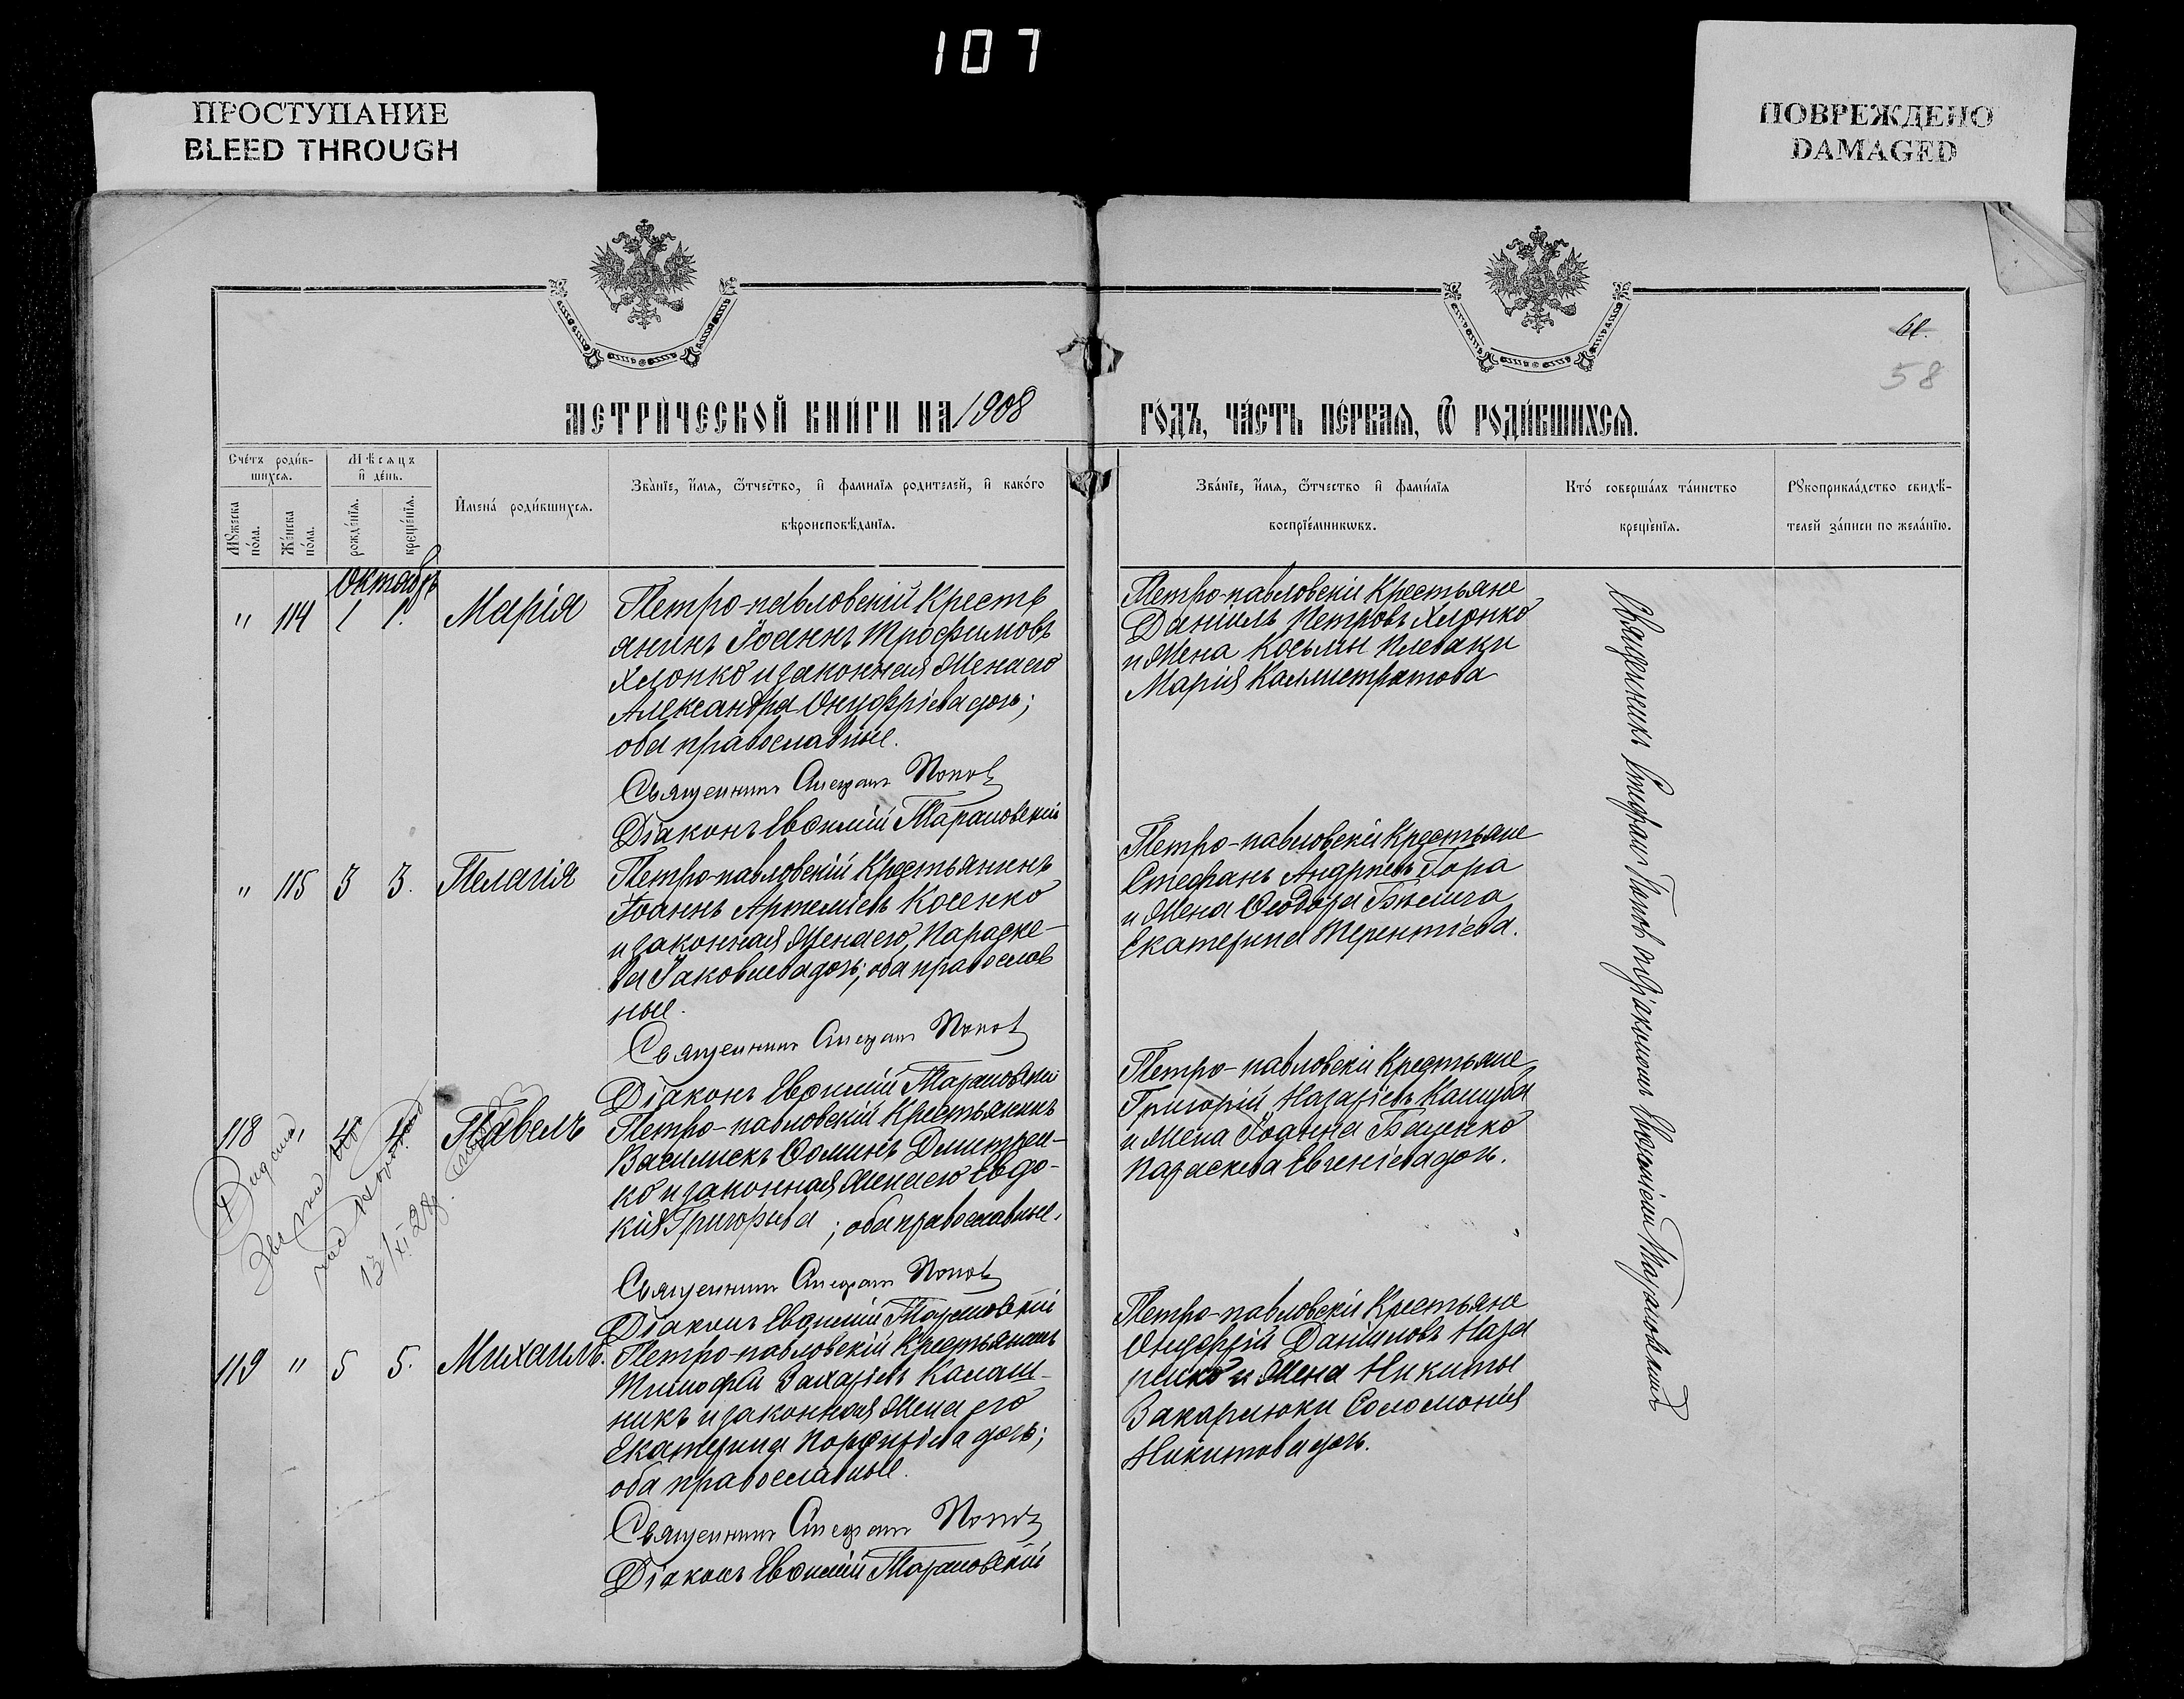 107
ПРОСТУПАНИЕ
BLEED THROUGH
ПОВРЕЖДЕНО
DAMAGED
58
МЕТРИ́ЧЕСКОЙ КНИ́ГИ НА 1908
ГО́ДЪ, ЧА́СТЬ ПЕ́РВАЯ, Ѽ РОДИ́ВШИХСЯ.
Сче́тъ роди́в-
шихся.
Мѣ́сяцъ
и҆ де́нь.
Мꙋ́жеска
по́ла.
Же́нска
по́ла.
рожде́нїя.
креще́нїя.
И҆мена̀ роди́вшихся.
Зва́нїе, и҆́мя, ѻ҆́тчество, и҆ фами́лїя роди́телей, и҆ како́го
вѣроисповѣ́данїя.
Зва́нїе, и҆́мя, ѻ҆́тчество и҆ фами́лїя
воспрїе́мникѡвъ.
Кто́ соверша́лъ та́инство
креще́нїя.
Рꙋкоприкла́дство свидѣ́-
телей за́писи по жела́нїю.
Октябрь
" 114 1 1. Марія
Петро-павловскій Кресть
янинъ Іоаннъ Трофимовъ
Хлопко и законная Жена его
Александра Онуфріева дочь;
оба православные.
Священникъ Стефанъ Поповъ
Діаконъ Евѳимій Тарановскій
Петро-павловскіи Крестьяне
Даніилъ Петровъ Хлопко
и Жена Косьмы Плеваки
Марія Каллистратова
" 115 3 3. Пелагія
Петро-павловскій Крестьянинъ
Іоаннъ Артеміевъ Косенко
и законная Жена его, Параске-
ва Іаковлева дочь; оба православ
ные.
Священникъ Стефанъ Поповъ
Діаконъ Евѳимій Тарановскій
Петро-павловскіи Крестьяне
Стефанъ Андреевъ Гора
и Жена Ѳеодора
Екатерина Терентіева.
118 " 4 4. Павелъ
13/XI 28
Петро-павловскій Крестьянинъ
Василискъ Ѳоминъ Дмитрен-
ко и законная Жена его Евдо-
кія Григорьева ; оба православные.
Священникъ Стефанъ Поповъ
Діаконъ Евѳимій Тарановскій
Петро-павловскіи Крестьяне
Григорій Назаріевъ Кашуба
и Жена Іоанна Баценко
Параскева Евгеніева дочь.
119 " 5 5. Михаилъ.
Петро-павловскій Крестьянинъ
Тимофей Захаріевъ Калаш-
никъ и законная Жена его
Екатерина Порфиріева дочь;
оба православные.
Священникъ Стефанъ Поповъ
Діаконъ Евѳимій Тарановскій
Петро-павловскіи Крестьяне
Онуфрій Даніиловъ Наза
ренко и Жена Никиты
Закарлюки Соломонія
Никитова дочь.
Священникъ Стефанъ Поповъ съ діакономъ Евѳиміемъ Тарановскимъ